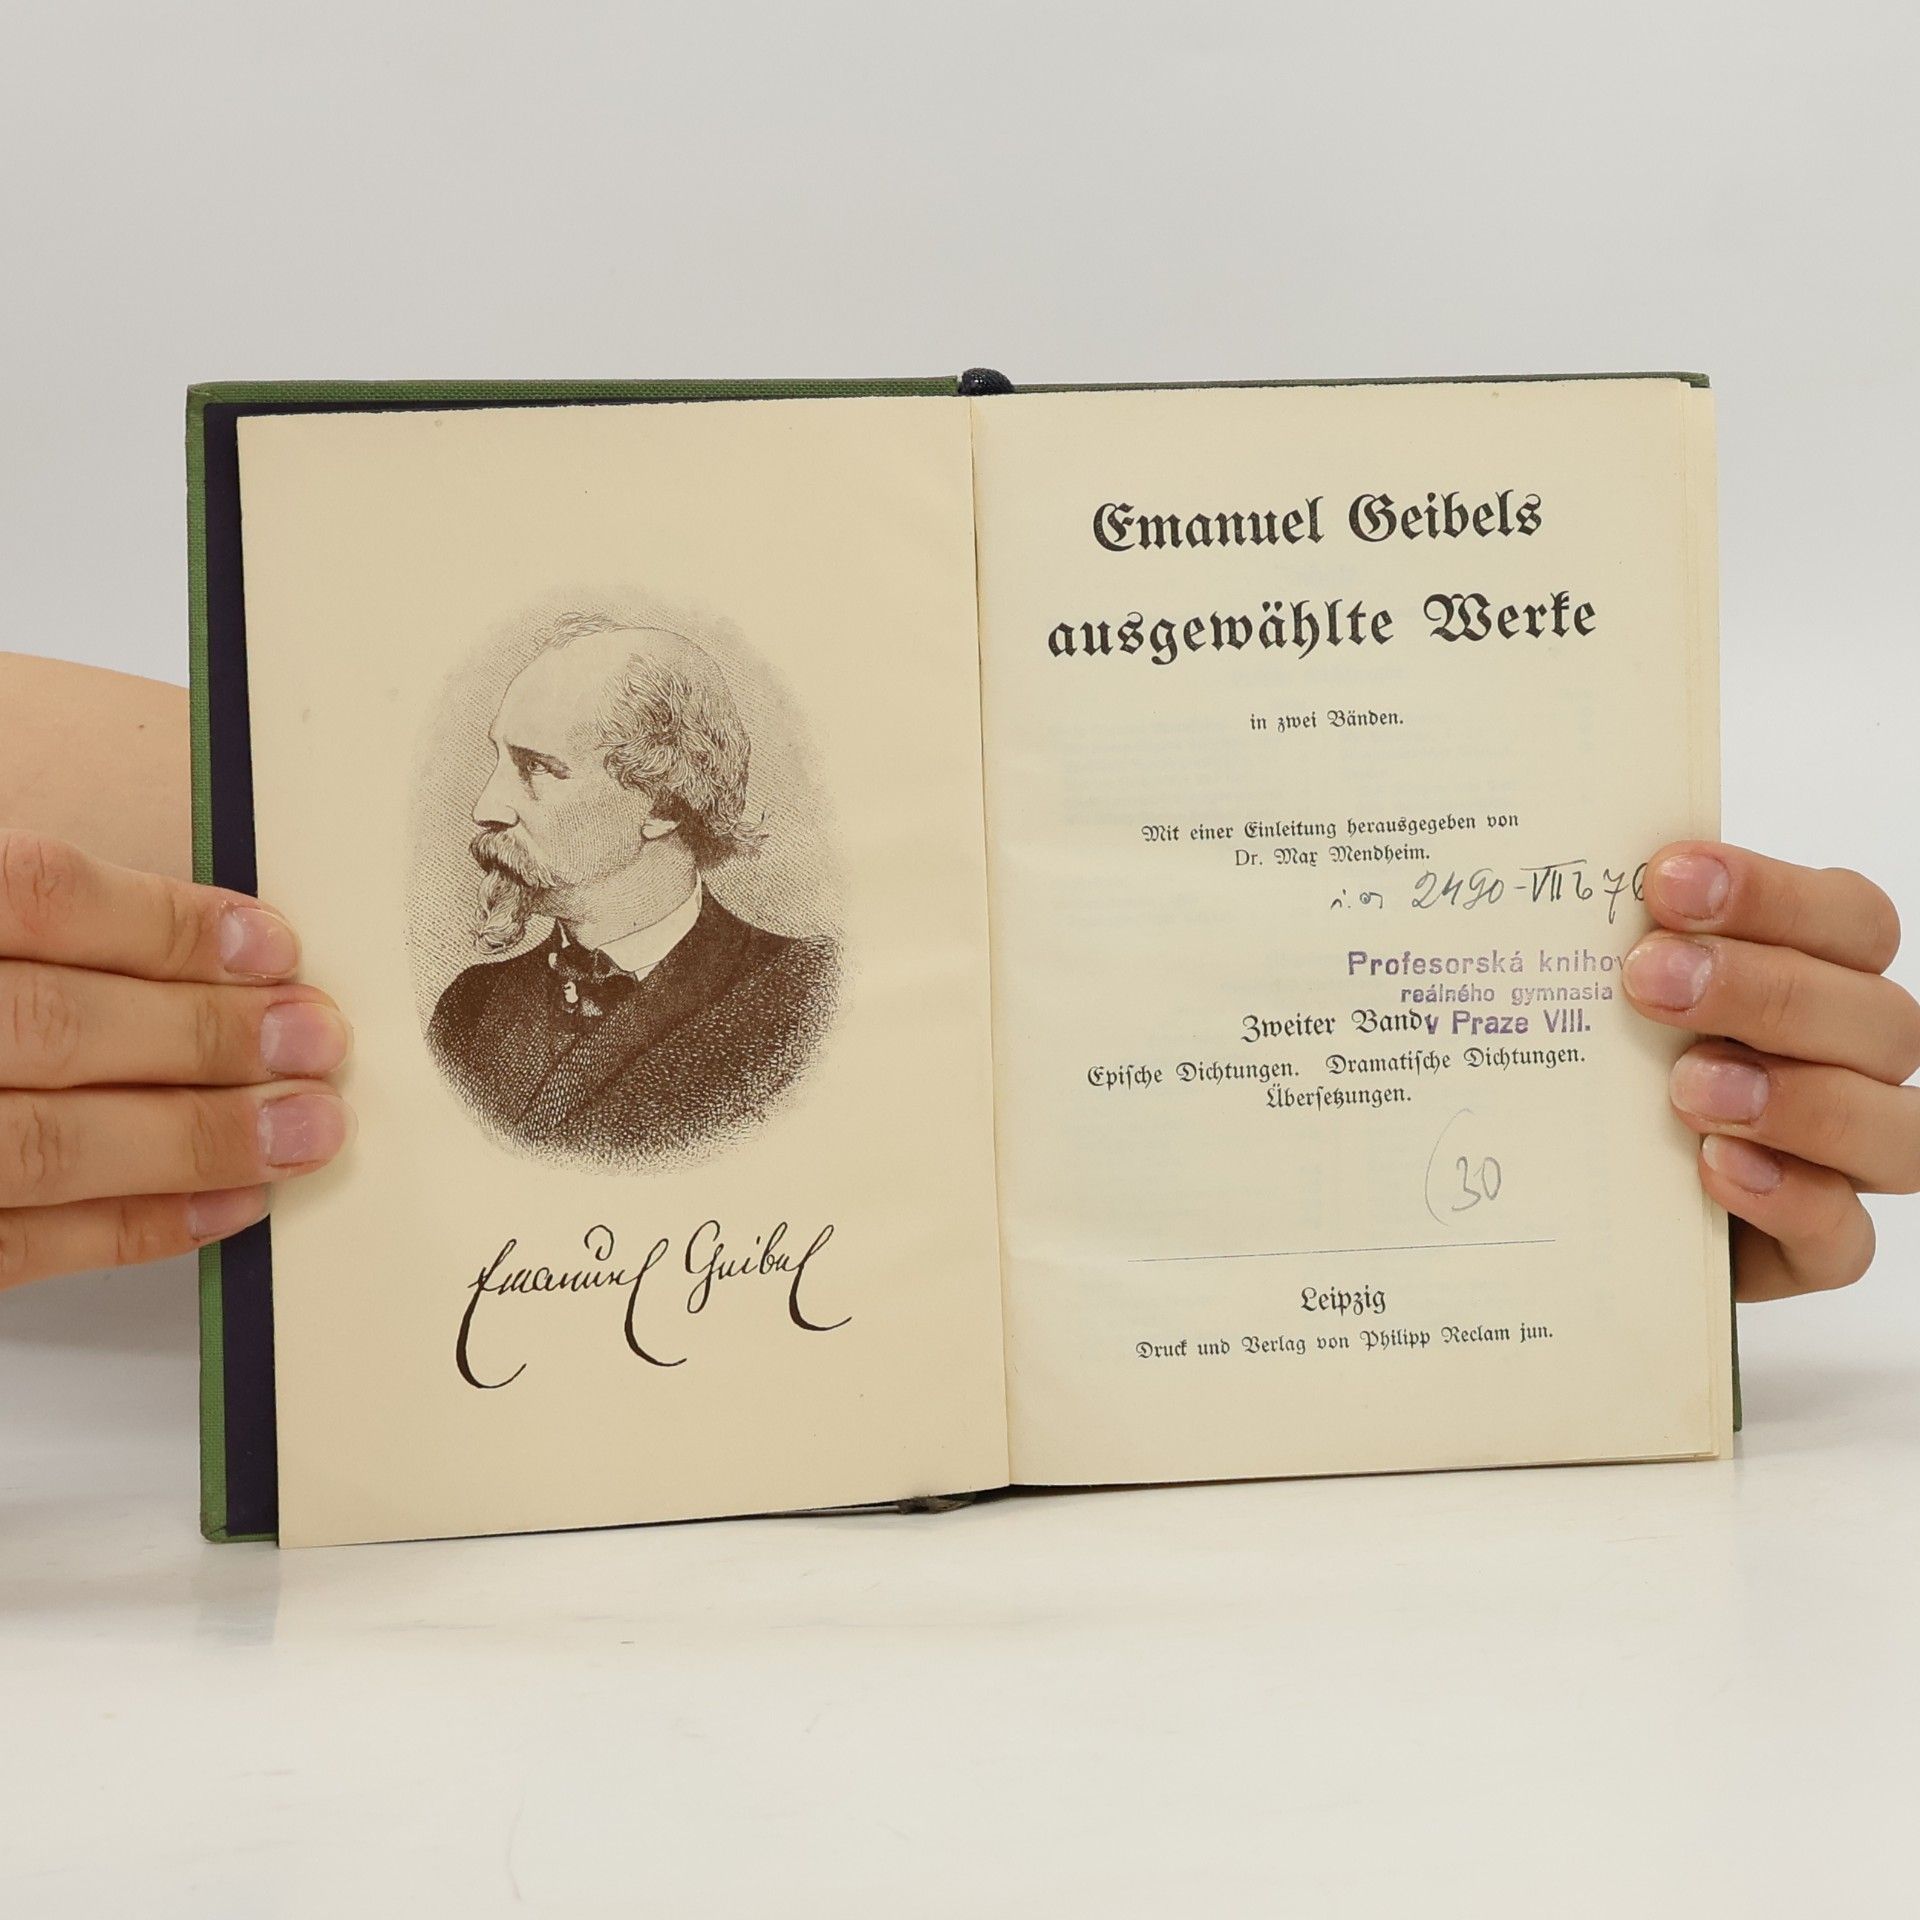 Emanuel Geibel
Emanuel Geibels
ausgewählte Werke
in zwei Bänden.
Mit einer Einleitung herausgegeben von
Dr. Max Mendheim.
2490-VII b 76
Profesorská knihov
reálného gymnasia
v Praze VIII.
Zweiter Band
Epiſche Dichtungen. Dramatiſche Dichtungen.
Überſetzungen.
(30
Leipzig
Druck und Verlag von Philipp Reclam jun.